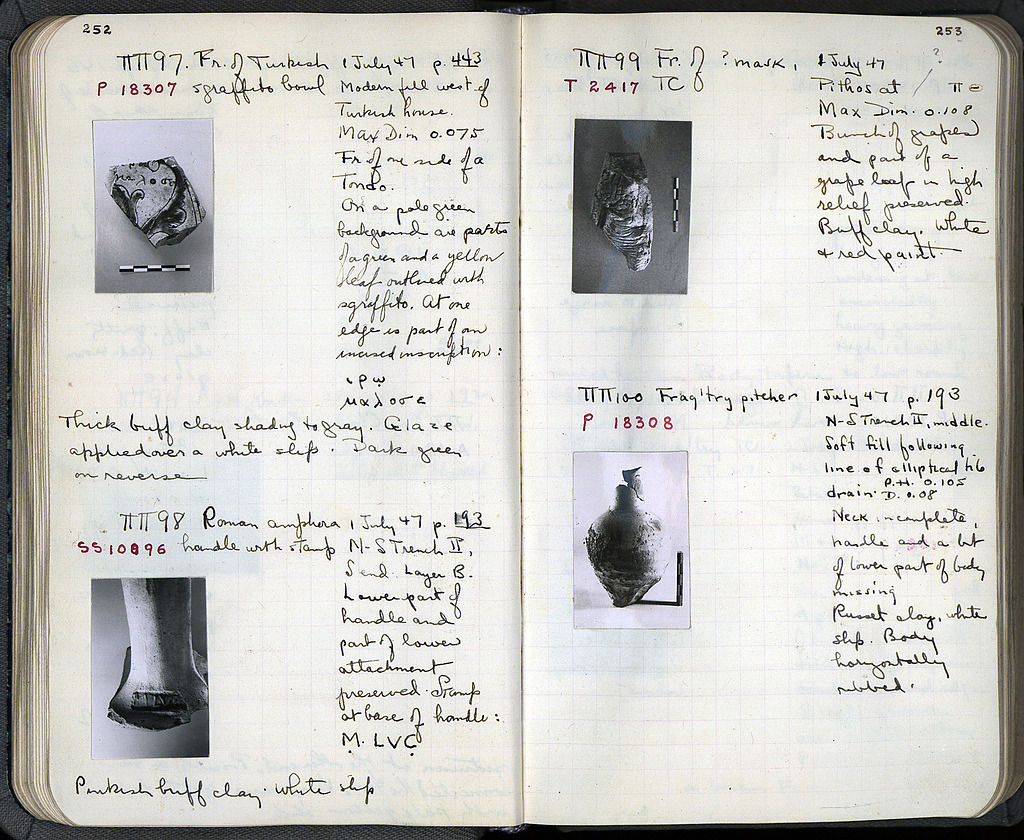 252
ΠΠ97. Fr. of Turkish 1 July 47 p. 443
P 18307 sgraffito bowl Modern fill west of
Turkish house.
Max Dim 0.075
Fr. of one side of a
Tondo.
On a pale green
background are parts
of a green and a yellow
leaf outlined with
sgraffito. At one
edge is part of an
incised inscription:
ιρω
μαλοσε
Thick buff clay shading to gray. Glaze
applied over a white slip. Dark green
on reverse
ΠΠ98 Roman amphora 1 July 47 p. 193
SS 10896 handle with stamp N-S Trench II,
S end. Layer B.
Lower part of
handle and
part of lower
attachment
preserved. Stamp
at base of handle:
M. LVC
Pinkish buff clay. White slip
253
ΠΠ99 Fr. of ? mask, 1 July 47 ?
T 2417 TC Pithos at Π
Max Dim. 0.108
Bunch of grapes
and part of a
grape leaf in high
relief preserved.
Buff clay. White
+ red paint.
ΠΠ100 Frag'try pitcher 1 July 47 p. 193
P 18308 N-S Trench II, middle.
Soft fill following
line of elliptical
P.H. 0.105
drain. D. 0.08
Neck incomplete,
handle and a bit
of lower part of body
missing
Russet clay, white
slip. Body
horizontally
ribbed.